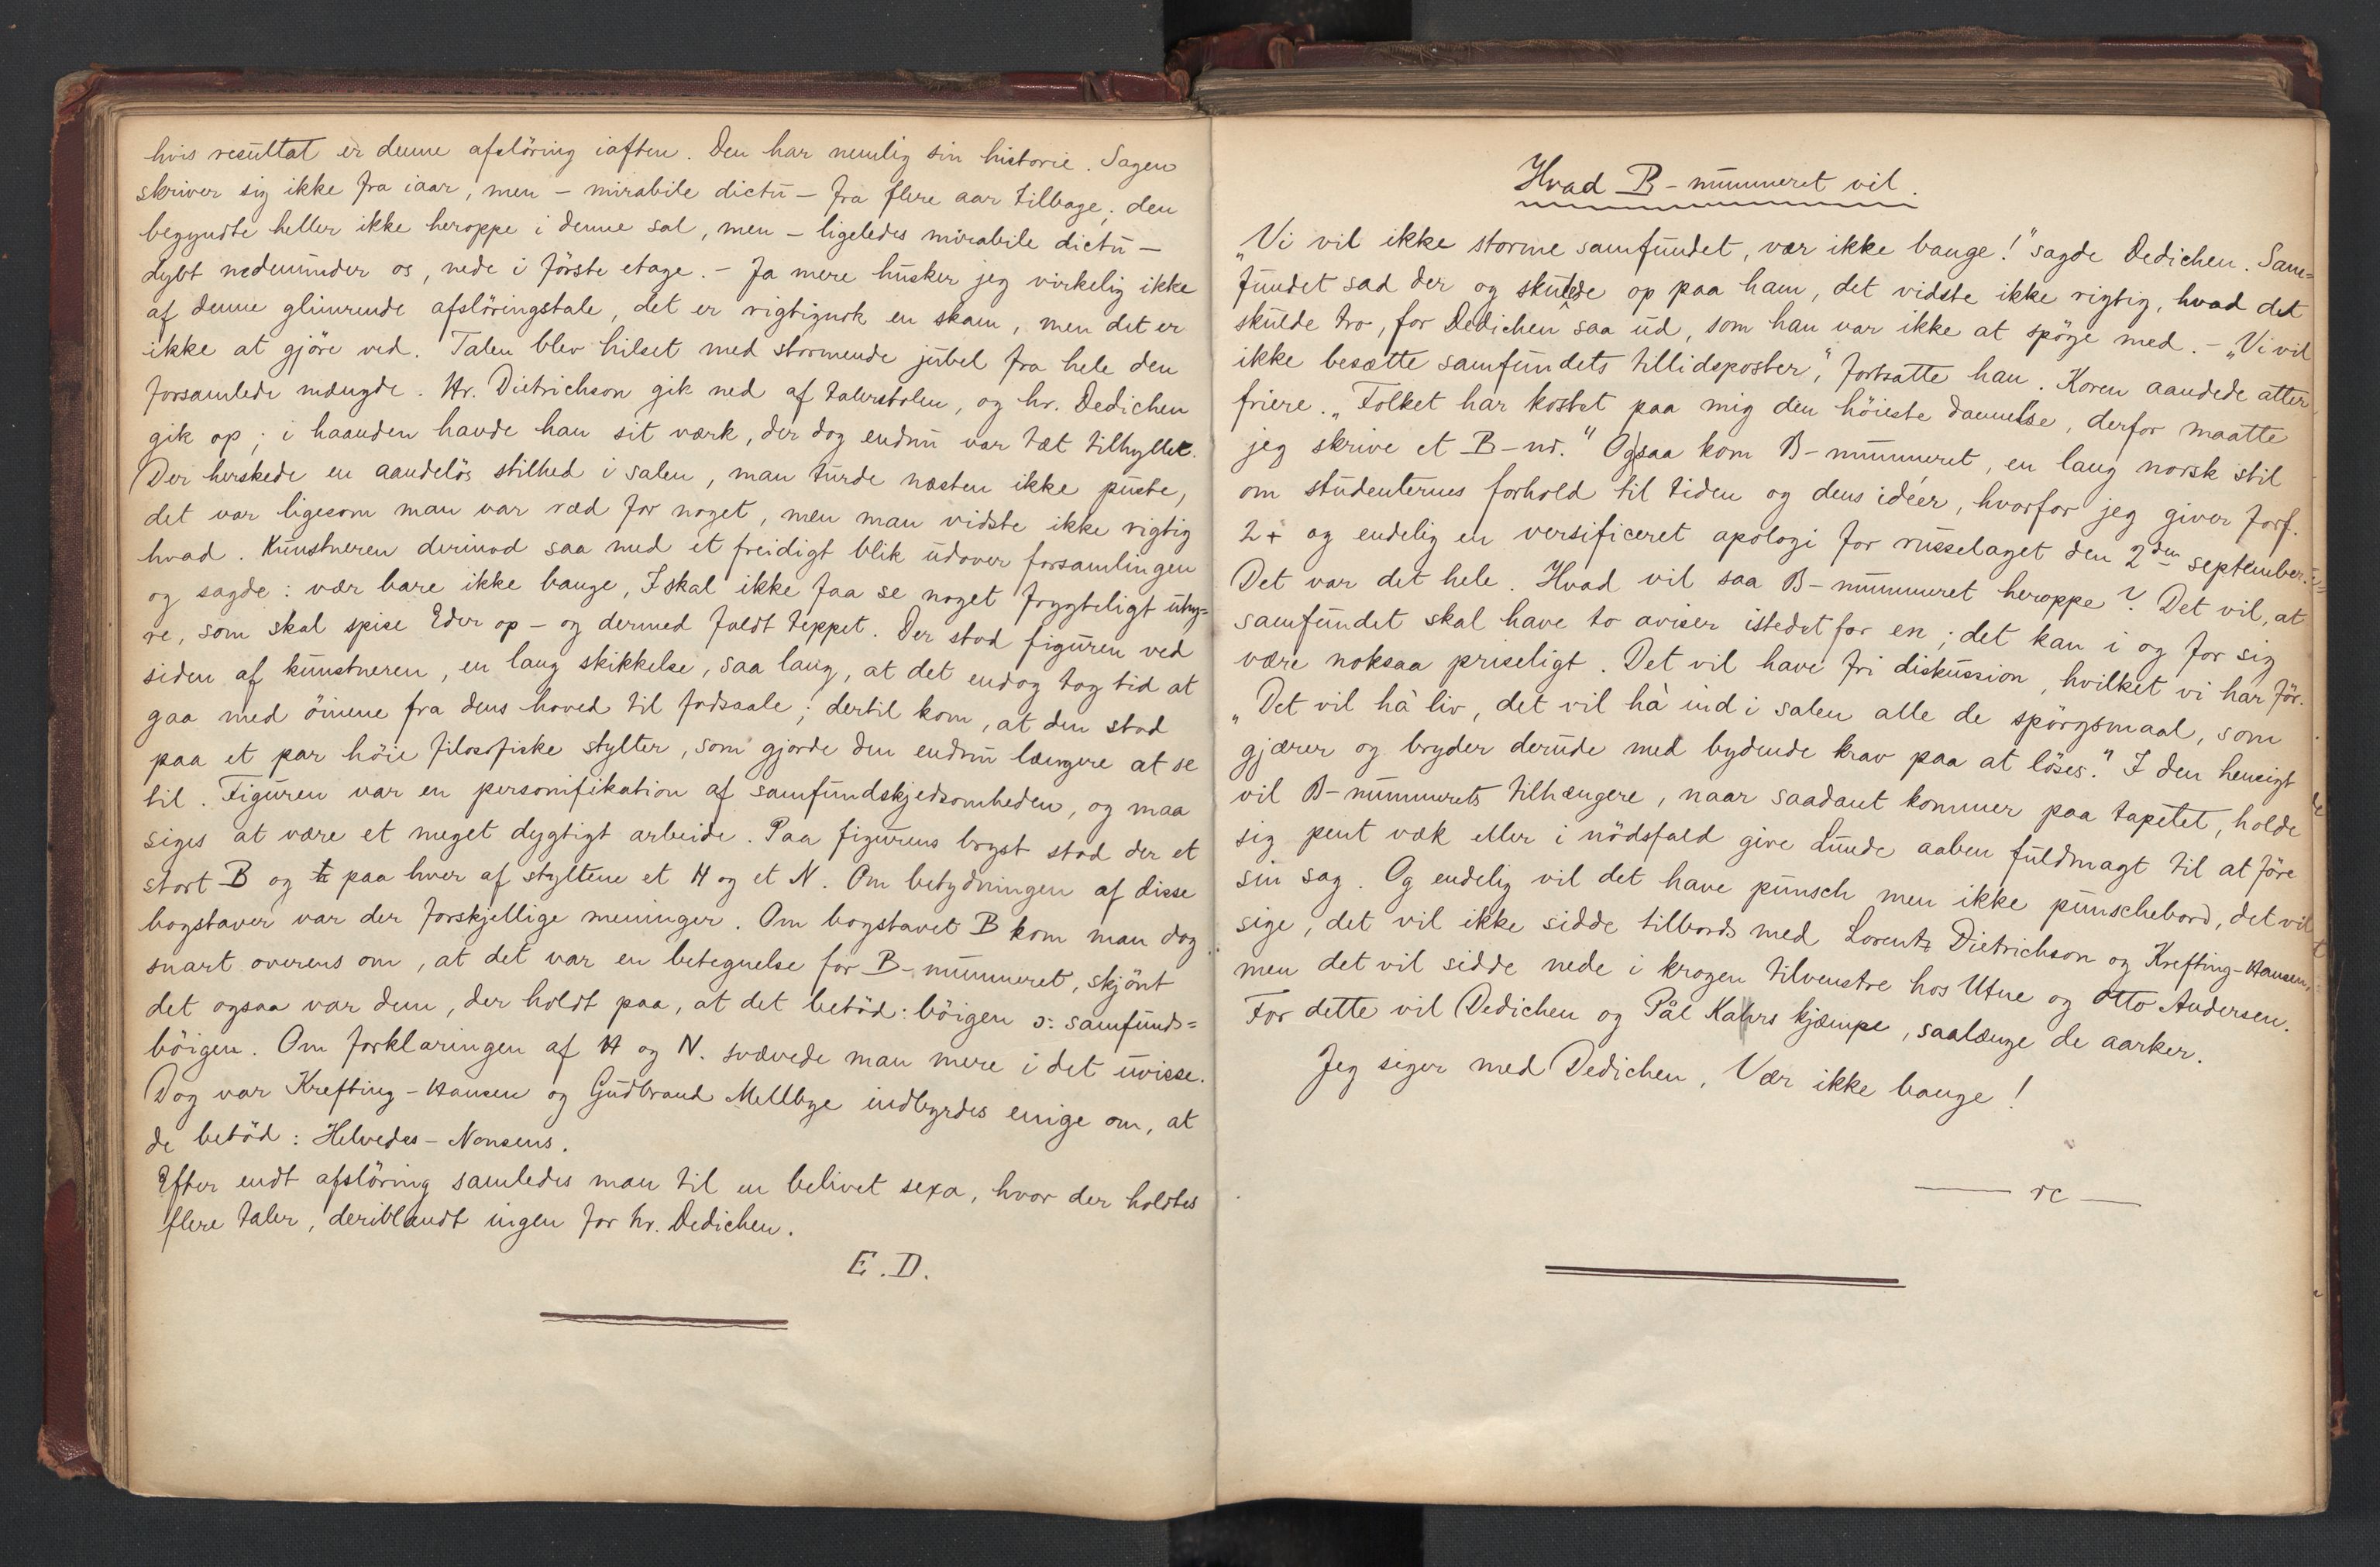 hvis resultat er denne afsløring iaften. Den har nemlig sin historie. Sagen
skriver sig ikke fra iaar, men – mirabile dictu – fra flere aar tilbage; den
begyndte heller ikke heroppe i denne sal, men – ligeledes mirabile dictu –
dybt nedenunder os, nede i første etage. – Ja mere husker jeg virkelig ikke
af denne glimrende afsløringstale, det er rigtignok en skam, men det er
ikke at gjöre ved. Talen blev hilset med stormende jubel fra hele den
forsamlede mængde. Hr. Dietrichson gik ned af talerstolen, og hr. Dedichen
gik op; i haanden havde han sit værk, der dog endnu var tæt tilhyllet.
Der herskede en aandelös stilhed i salen, man turde næsten ikke puste,
det var ligesom man var ræd for noget, men man vidste ikke rigtig
hvad. Kunstneren derimod saa med et freidigt blik udover forsamlingen
og sagde: vær bare ikke bange, I skal ikke faa se noget frygteligt uhy-
re, som skal spise Eder op – og dermed faldt teppet. Der stod figuren ved
siden af kunstneren, en lang skikkelse, saa lang, at det endog tog tid at
gaa med öinene fra dens hoved til fodsaale; dertil kom, at den stod
paa et par höie filosofiske stylter, som gjorde den endnu længere at se
til. Figuren var en personifikation af samfundskjedsomheden, og maa
siges at være et meget dygtigt arbeide. Paa figurens bryst stod der et
stort B og paa hver af styltene et H og et N. Om betydningen af disse
bogstaver var der forskjellige meninger. Om bogstavet B kom man dog
snart overens om, at det var en betegnelse for B-nummeret, skjönt
det ogsaa var dem, der holdt paa, at det betöd: böigen ɔ: samfunds=
böigen. Om forklaringen af H og N. svævede man mere i det uvisse.
Dog var Krefting-Hansen og Gudbrand Mellbye indbyrdes enige om, at
de betöd: Helvedes-Nonsens.
Efter endt afslöring samledes man til en belivet sexa, hvor der holdtes
flere taler, deriblandt ingen for hr. Dedichen.
E. D.
Hvad B-nummeret vil.
„Vi vil ikke storme samfundet, vær ikke bange!" sagde Dedichen. Sam=
fundet sad der og skulede op paa ham, det vidste ikke rigtig, hvad det
skulde tro, for Dedichen saa ud, som han var ikke at spöge med. – „Vi vil
ikke besætte samfundets tillidsposter", fortsatte han. Koren aandede atter
friere. „Folket har kostet paa mig den höieste dannelse, derfor maatte
jeg skrive et B-nr." Ogsaa kom B-nummeret, en lang norsk stil
om studenternes forhold til tiden og dens idéer, hvorfor jeg giver forf.
2+ og endelig en versificeret apologi for russelaget den 2den september.
Det var det hele. Hvad vil saa B-nummeret heroppe? Det vil, at
samfundet skal have to aviser istedetfor en; det kan i og for sig
være noksaa priseligt. Det vil have fri diskussion, hvilket vi har för.
„Det vil há liv, det vil há ind i salen alle de spörgsmaal, som
gjærer og bryder derude med bydende krav paa at löses." I den henseigt
vil B-nummerets tilhængere, naar saadant kommer paa tapetet, holde
sig pent væk eller i nödsfald give Lunde aaben fuldmagt til at före
sin sag. Og endelig vil det have punsch men ikke punschebord, det vil
sige, det vil ikke sidde tilbords med Lorentz Dietrichson og Krefting-Hansen,
men det vil sidde nede i krogen tilvenstre hos Utne og Otto Andersen.
For dette vil Dedichen og Pål Kahrs kjæmpe, saalænge de aarker.
Jeg siger med Dedichen, Vær ikke bange!
— rc —